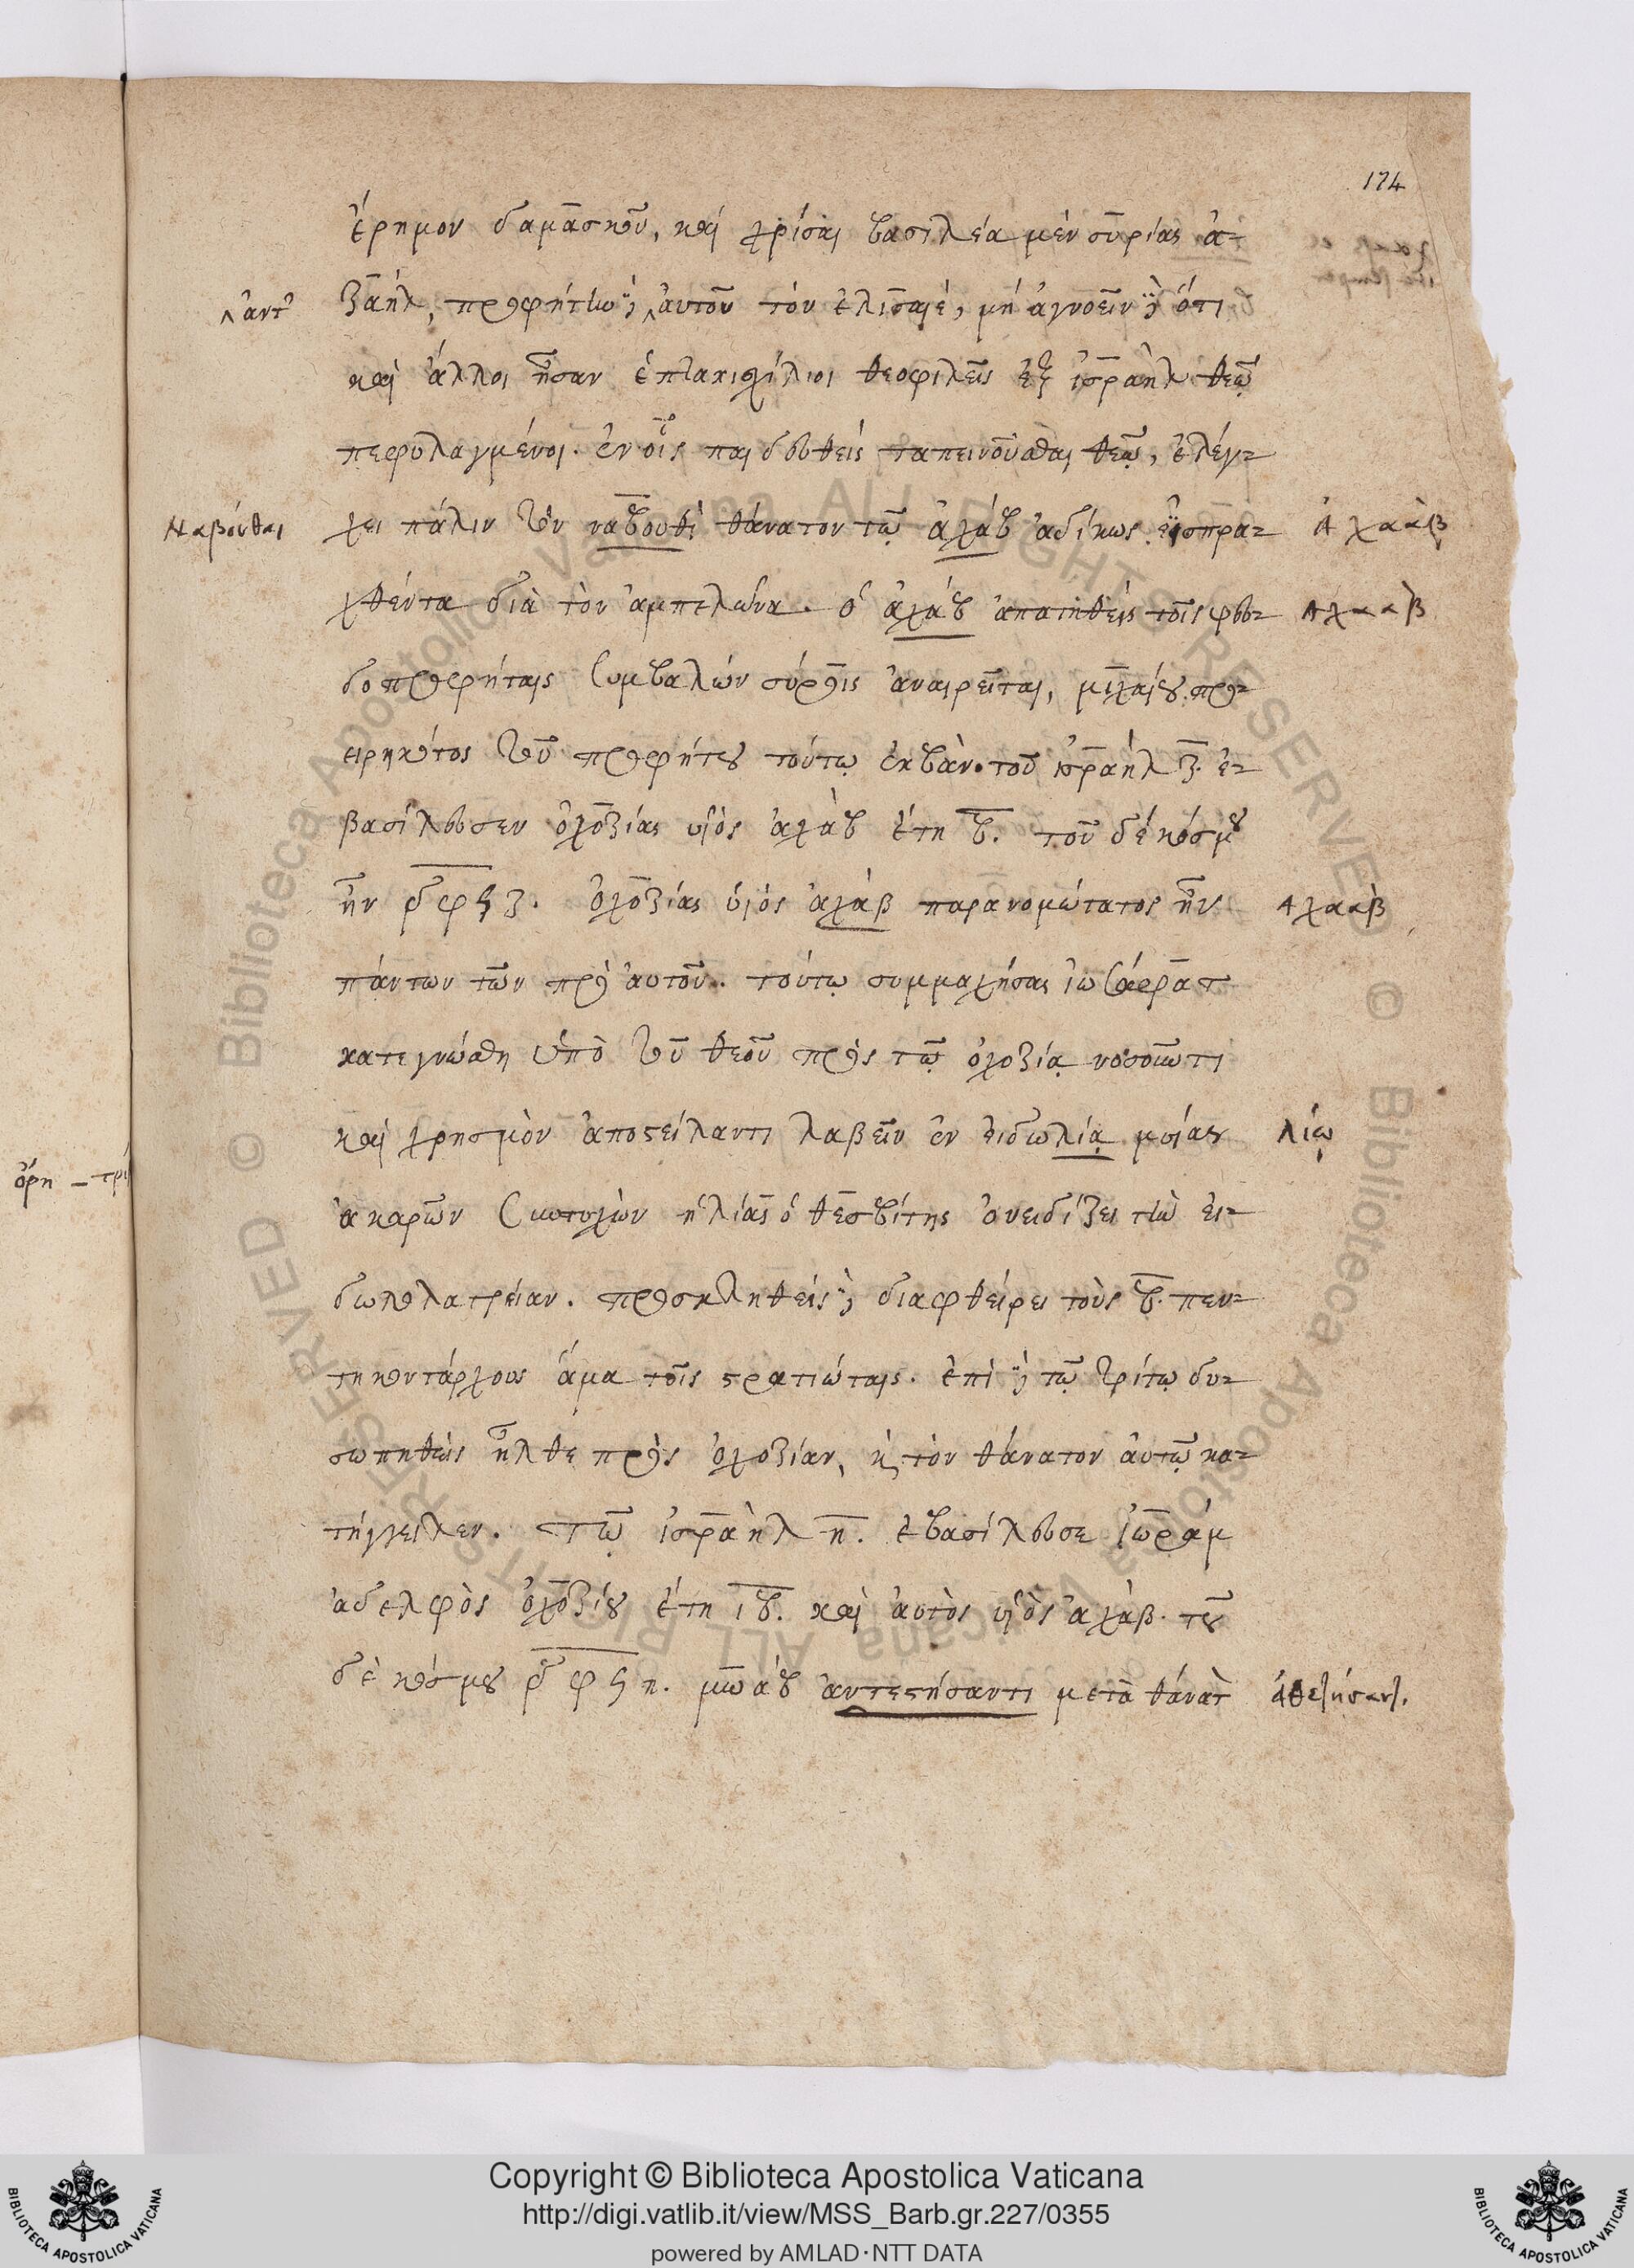 174
ἔρημον δαμασκοῦ, καὶ χρίσαι βασιλέα μὲν συρίας ἀ-
ζαὴλ, προφήτην δὲ αὐτοῦ τὸν ἐλισσαιὲ, μὴ ἀγνοεῖν δὲ ὅτι
ἀντ᾽
καὶ ἄλλοι ἦσαν ἑπτακισχίλιοι θεοφιλεῖς ἐξ ἰσραὴλ θεῷ
πεφυλαγμένοι. ἐν οἷς παιδευθεὶς ταπεινοῦσθαι θεῷ, ἐλέγ-
Ναβούθαι
χει πάλιν τὸν ναβουθὶ θάνατον τῷ ἀχάβ ἀδίκως εἰσπρα-
Ἀχαὰβ
χθέντα διὰ τὸν ἀμπελῶνα. ὁ ἀχάβ ἀπατηθεὶς τοῖς ψευ-
Αχααβ
δοπροφήταις συμβαλὼν σύροις ἀναιρεῖται, μιχαίου προ-
ειρηκότος τοῦ προφήτου τούτῳ ἐκβάν. τοῦ ἰσραὴλ ζ. ἐ-
βασίλευσεν ὀχοζίας υἱὸς ἀχὰβ ἔτη β. τοῦ δὲ κόσμου
ἦν ͵δφϟζ. ὀχοζίας υἱὸς ἀχὰβ παρανομώτατος ἦν
Αχααβ
πάντων τῶν πρὸ αὐτοῦ. τούτῳ συμμαχήσας ἰωσάφατ
κατεγνώσθη ὑπὸ τοῦ θεοῦ πρὸς τῷ ὀχοζίᾳ νοσοῦντι
καὶ χρησμὸν ἀποστείλαντι λαβεῖν ἐν εἰδωλίᾳ μυίας
λίῳ
ἀκαρῶν συντυχὼν ἠλίας ὁ θεσβίτης ὀνειδίζει τὴν εἰ-
δωλολατρείαν. προσκληθεὶς δὲ διαφθείρει τοὺς β. πεν-
τηκοντάρχους ἅμα τοῖς στρατιώταις. ἐπὶ δὲ τῷ τρίτῳ δυ-
σωπηθεὶς ἦλθε πρὸς ὀχοζίαν, κ̀ τὸν θάνατον αὐτῷ κα-
τήγγειλεν. τῷ ἰσραὴλ η. ἐβασίλευσε ἰωράμ
ἀδελφὸς ὀχοζίου ἔτη ιβ. καὶ αὐτὸς υἱὸς ἀχάβ. τοῦ
δὲ κόσμου ͵δφϟη. μωάβ ἀντεστήσαντι μετὰ θάνατ
Copyright © Biblioteca Apostolica Vaticana
http://digi.vatlib.it/view/MSS_Barb.gr.227/0355
powered by AMLAD·NTT DATA
BIBLIOTECA APOSTOLICA VATICANA
BIBLIOTECA APOSTOLICA VATICANA